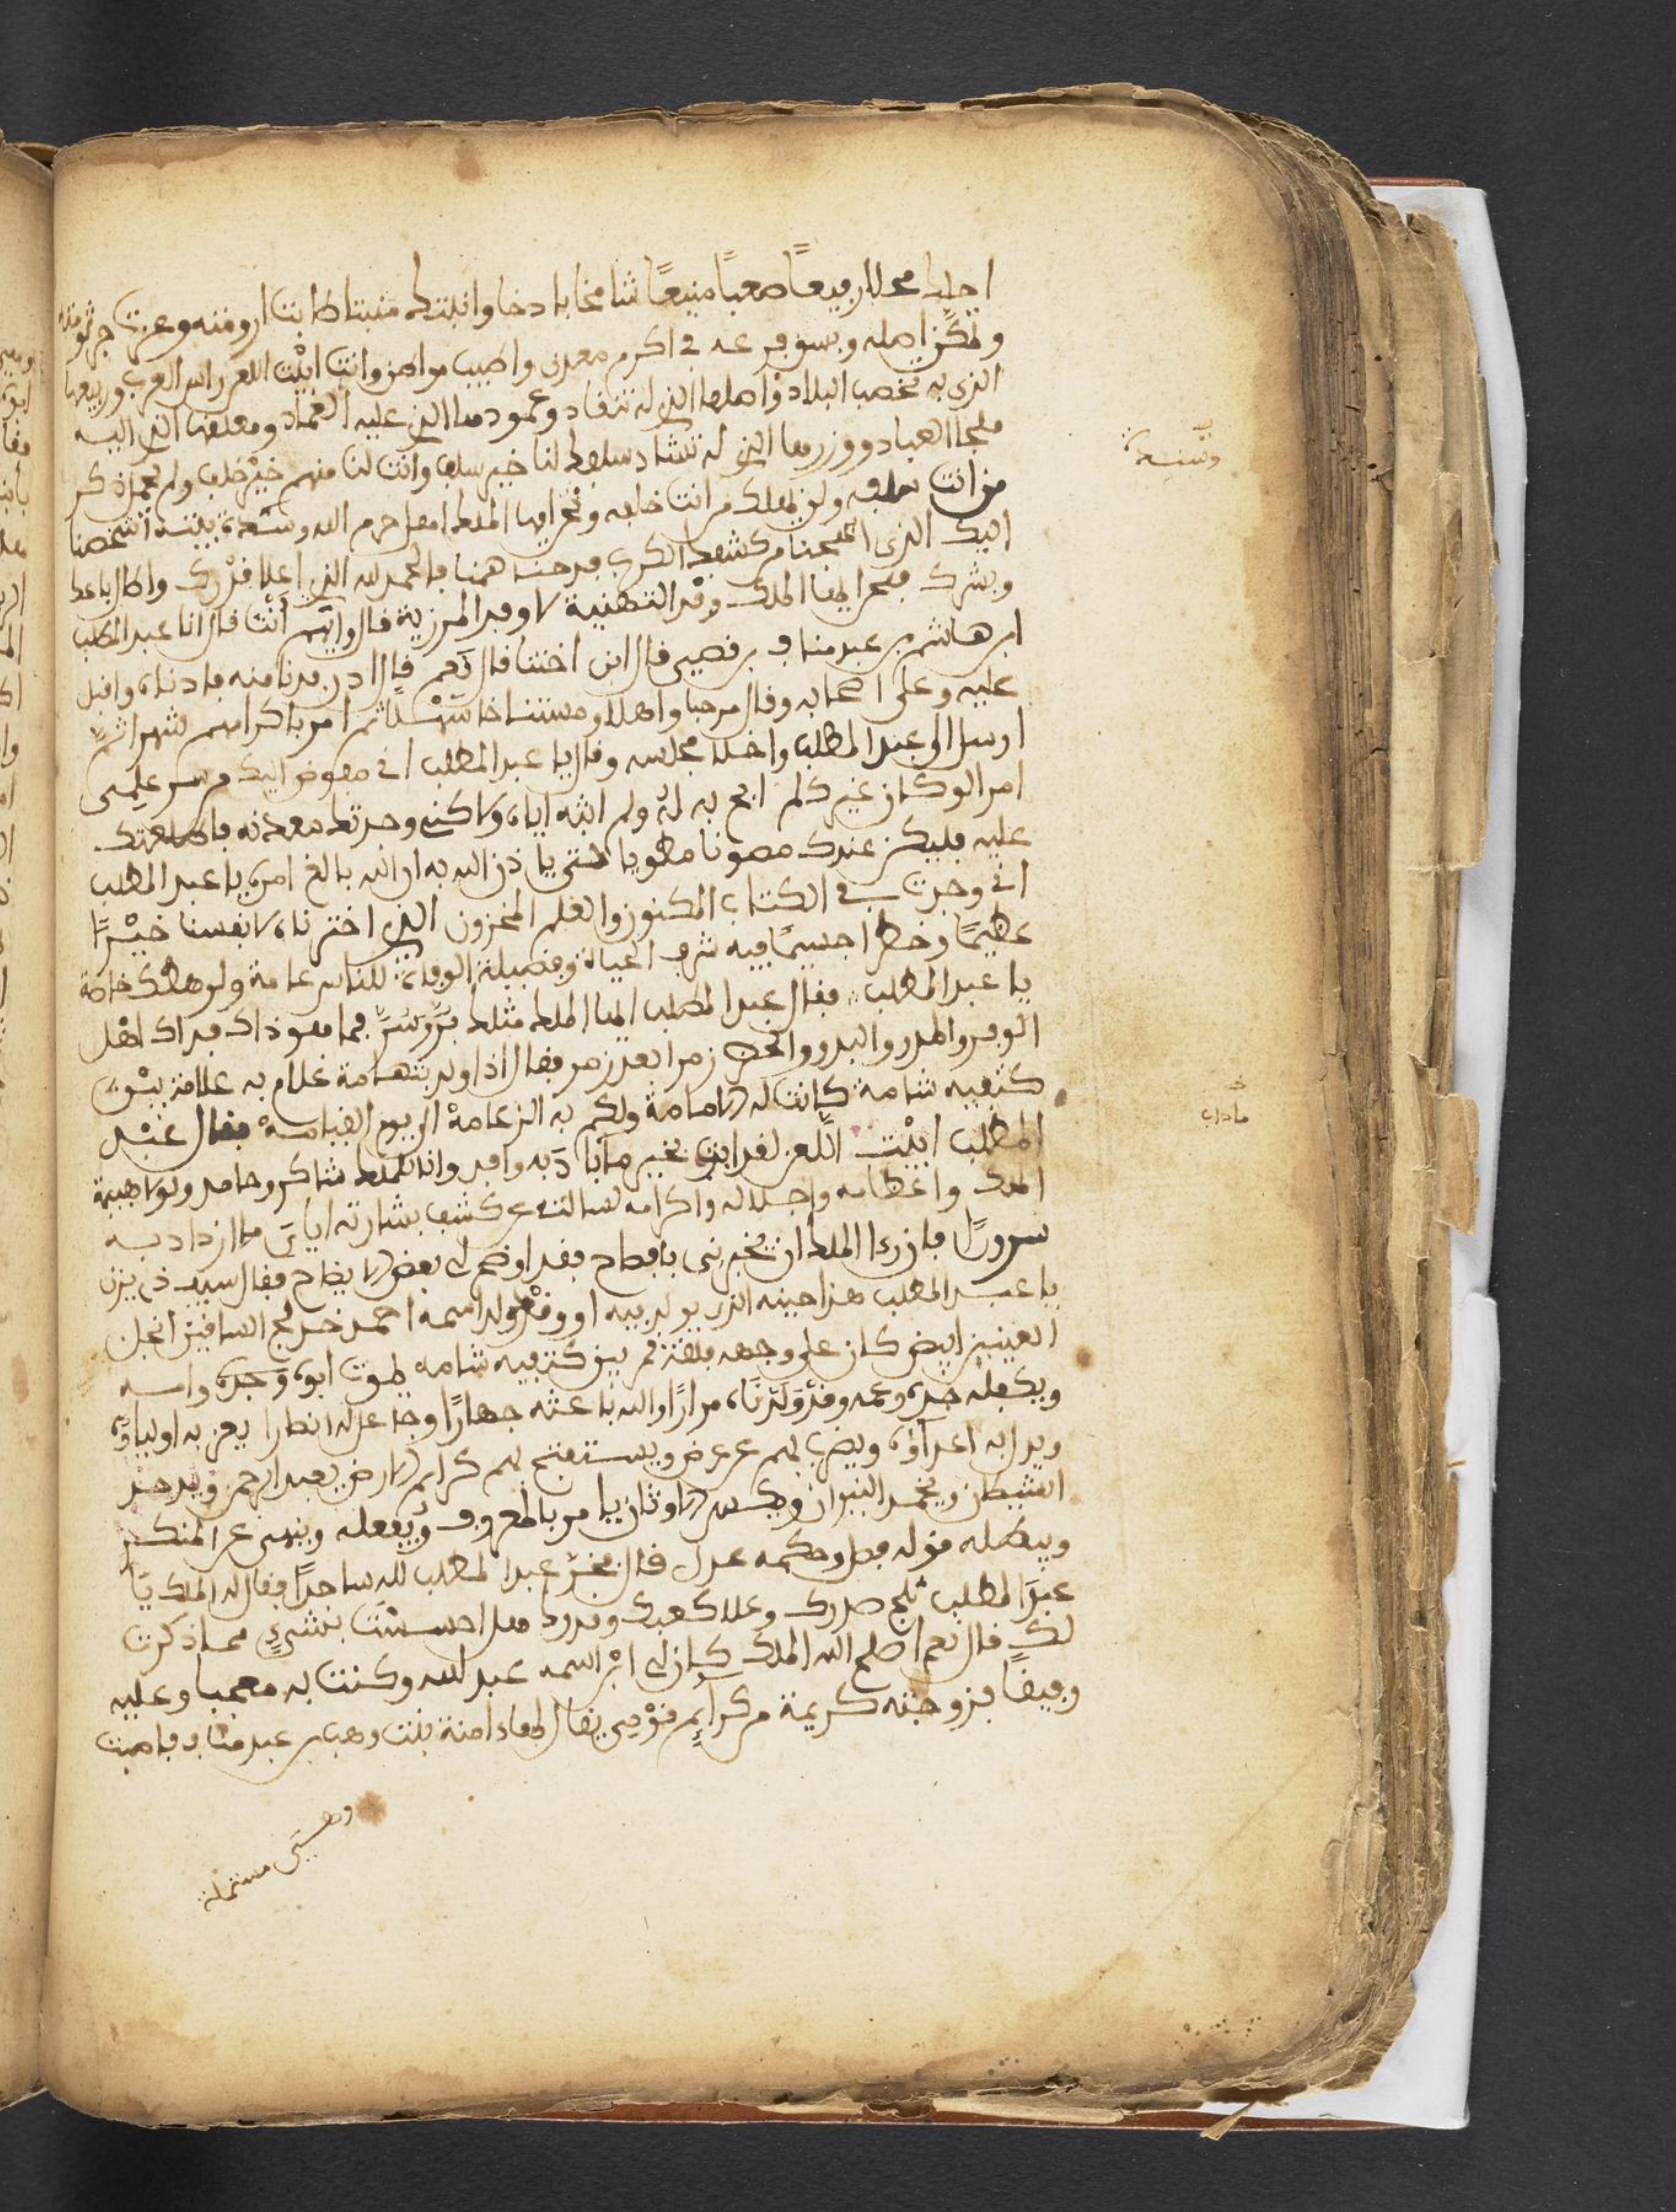 احلك محلا رفيعًا صعبًا منيعًا شامخا باذخا وانبتك منبتا طابت ارومته وعزت جرثومته
وتمكن اصله وبسق فرعه في اكرم معدن واطيب موطن وانت ابيْت اللعن راس العرب وربيعها
الذي به تخصب البلاد واصلها الذي له تنقاد وعمودها الذي عليه العماد ومعقلها الذي اليه
ملجا العباد سلفك لنا خير سلف وانت لنا منهم خيْر خلف ولم يخمل ذكر
وسدنة
من انت سلفه ولن يهلك من انت خلفه ونحن ايها الملك اهل حرم الله وسدنة بيته اشخصنا
اليك الذي ابهجنا من كشف الكرب فدحنا همنا فالحمد لله الذي اعلا قدرك واطال باعك
وبشرك فنحن ايها الملك وفد التهنية لا وفد المرزية قال وايهم أنْت قال انا عبد المطلب
ابن هاشم بن عبد مناف بن قصي قال ابن اختنا قال نَعم قال ادن فدنا منه فادناه واقبل
عليه وعلى اصحابه وقال مرحبا واهلا ومستناخا سَهْلا ثم امر باكرامهم شهرا ثم
ارسل الى عبد المطلب واخلا مجلسه وقال يا عبد المطلب اني مفوض اليك من سر علمي
امرا لو كان غيرك لم ابح به له ولم ابثه اياه ولاكني وجدتك معدنه فاطلعتك
عليه فليكن عندك مصونا مطويا حتى ياذن الله به ان الله بالغ امره يا عبد المطلب
اني وجدت في الكتاب المكنون والعلم المخزون الذي اخترناه لانفسنا خيْرًا
عظيمًا وخطرا جسيمًا فيه شرف الحياة وفضيلة الوفاة للناس عامة ولرهطك خاصة
يا عبد المطلب فقال عبد المطلب ايها الملك مثلك برَّ وسَرَّ فما هو ذاك فداك اهْل
الوبر والمدر والبدو والحضر زمرا بعد زمر فقال اذا ولد بتهامة غلام به علامة بيْن
كتفيه شامة كانت له الامامة ولكم به الزعامة الى يوم القيامة فقال عبْد
المطلب ابيْت اللعن لقد ابت بخير ما آبا به وافد وانا للملك شاكر وحامد ولولا هيبة
الملك واعظامه واجلاله واكرامه لسالته عن كشف بشارته اياي ما ازداد به
سرورًا فان راى الملك ان يخبرني بافصاح فقد اوضح لي بعض الايضاح فقال سيف ذي يزن
يا عبد المطلب هذا حينه الذي يولد فيه او وقد ولد اسمه احمد خدلج الساقين انجل
العينين ابيض كان على وجهه فلقة قمر بين كتفيه شامه يموت ابوه وَجدّه وامه
ويكفله جده وعمه وقد وَلدْنَاه مرارًا والله باعثه جهارًا وجاعل له انصارا يعز به اولياءه
ويذل به اعداءه ويضرب بهم عن عرض ويستفتح بهم كرايم الارض يعبد الرحمن ويدحر
الشيطان ويخمد النيران ويكسر الاوثان يامر بالمعروف ويفعله وينهى عن المنكر
ويبطله قوله فصل وحكمه عدل قال فخرّ عبد المطلب لله ساجدًا فقال له الملك يَا
عبْدَ المطلب ثلج صدرك وعلا كعبك هل احسسْت بشيءٍ مما ذكرت
لك قال نعم اصلح الله الملك كان لي ابْن اسمه عبد الله وكنت به معجبا وعليه
رفيقًا فزوجته كريمة من كرايم قوْمي يقال لها امنة بنت وهب بن عبد مناف فاصبت
وهي مشتملة